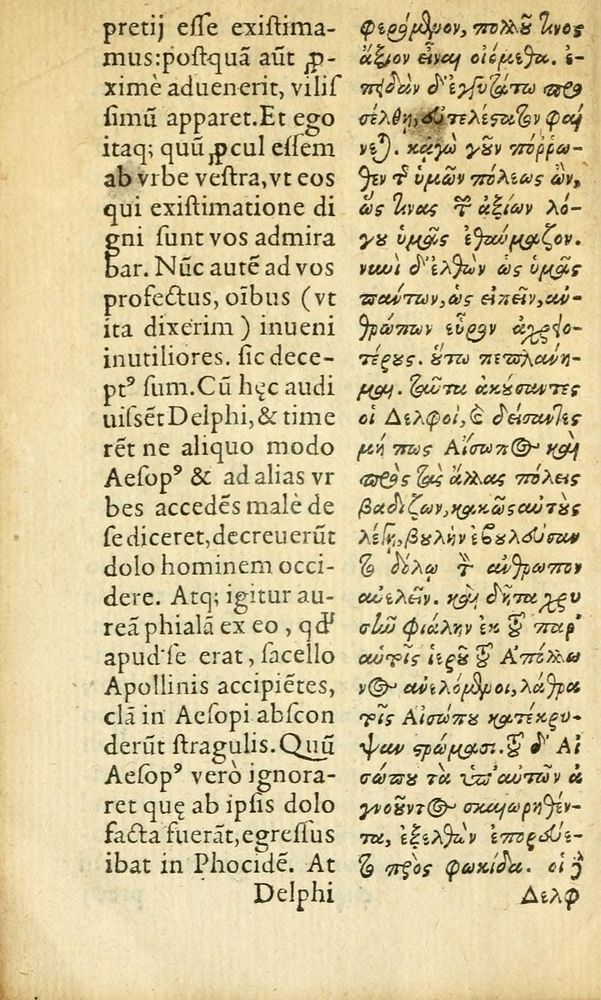 pretij esse existima-
mus: postquã aũt ꝓ-
ximè aduenerit, vilis
simũ apparet. Et ego
itaq; quũ ꝓcul essem
ab vrbe vestra, vt eos
qui existimatione di
gni sunt vos admira
bar. Nũc autẽ ad vos
profectus, oĩbus (vt
ita dixerim) inueni
inutiliores. sic dece-
ptꝰ sum. Cũ hęc audi
uissẽt Delphi, & time
rẽt ne aliquo modo
Aesopꝰ & ad alias vr
bes accedẽs malè de
se diceret, decreuerũt
dolo hominem occi-
dere. Atq; igitur au-
reã phialã ex eo, qd'
apud se erat, sacello
Apollinis accipiẽtes,
clã in Aesopi abscon
derũt stragulis. Quũ
Aesopꝰ verò ignora-
ret quę ab ipsis dolo
facta fuerãt, egressus
ibat in Phocidẽ. At
Delphi
φερόμενον, πολλοῦ τινος
ἄξιον εἶναι οἰόμεθα. ἐ-
πειδὰν δ' ἐγγυτάτω προ
σέλθῃ, εὐτελέστατον φαί
νεται. κᾀγὼ γοῦν πόῤῥω-
θεν τῆς ὑμῶν πόλεως ὢν,
ὥς τινας τῶν ἀξίων λό-
γου ὑμᾶς ἐθαύμαζον.
νυνὶ δ' ἐλθὼν ὡς ὑμᾶς
πάντων, ὡς εἰπεῖν, ἀν-
θρώπων εὗρον ἀχρειο-
τέρους. οὕτω πεπλάνη-
μαι. ταῦτα ἀκούσαντες
οἱ Δελφοὶ, καὶ δείσαντες
μή πως Αἴσωπος καὶ
πρὸς τὰς ἄλλας πόλεις
βαδίζων, κακῶς αὐτοὺς
λέγῃ, βουλὴν ἐβουλεύσαν
το δόλῳ τὸν ἄνθρωπον
ἀνελεῖν. καὶ δῆτα χρυ
σῆν φιάλην ἐκ τοῦ παρ'
αὐτοῖς ἱεροῦ τοῦ Ἀπόλλω
νος ἀνελόμενοι, λάθρα
τοῖς Αἰσώπου κατέκρυ-
ψαν στρώμασι. τοῦ δ' Αἰ
σώπου τὰ ὑπ' αὐτῶν ἀ
γνοοῦντος σκαιωρηθέν-
τα, ἐξελθὼν ἐπορεύε-
το πρὸς φωκίδα. οἱ δὲ
Δελφ